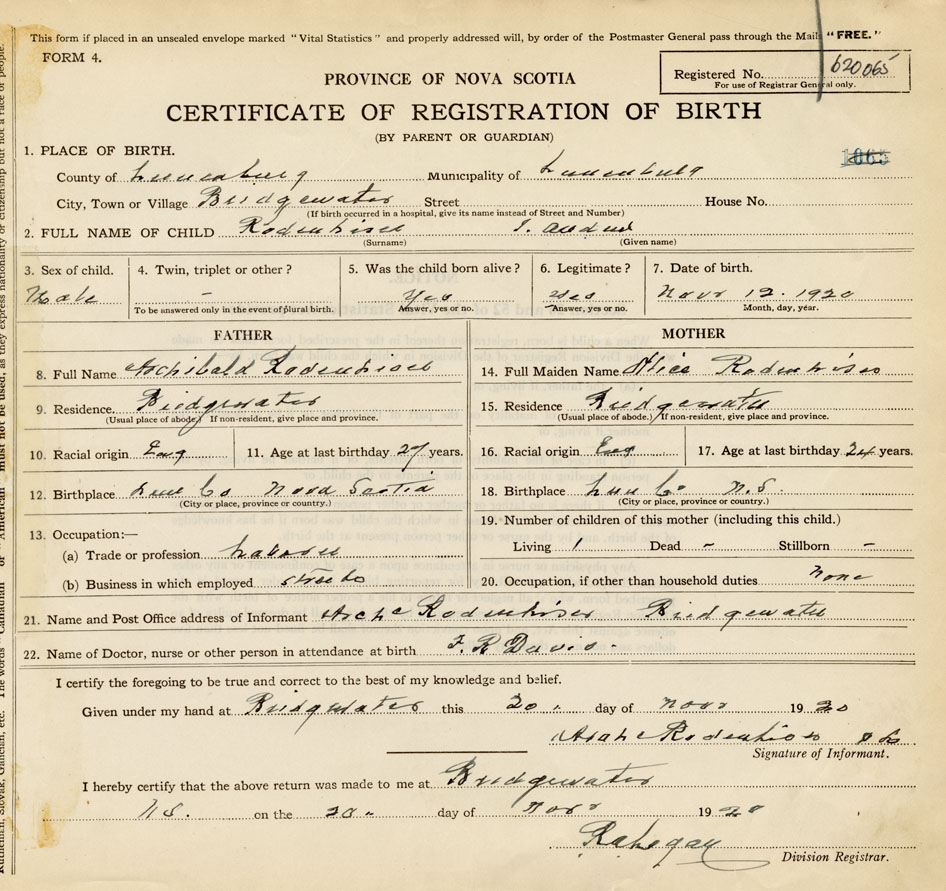 This form if placed in an unsealed envelope marked "Vital Statistics" and properly addressed will, by order of the Postmaster General pass through the Mail "FREE."
FORM 4.
Registered No. 620065
For use of Registrar General only.
PROVINCE OF NOVA SCOTIA
CERTIFICATE OF REGISTRATION OF BIRTH
(BY PARENT OR GUARDIAN)
1. PLACE OF BIRTH.
County of Lunenburg Municipality of Lunenburg
City, Town or Village Bridgewater Street House No.
(If birth occurred in a hospital, give its name instead of Street and Number)
2. FULL NAME OF CHILD Rodenhiser
(Surname) (Given name)
3. Sex of child. 4. Twin, triplet or other? 5. Was the child born alive? 6. Legitimate? 7. Date of birth.
Male - Yes Yes Novr 12. 1920
To be answered only in the event of plural birth. Answer, yes or no. Answer, yes or no. Month, day, year.
FATHER
8. Full Name Archibald Rodenhiser
9. Residence. Bridgewater
(Usual place of abode) If non-resident, give place and province.
10. Racial origin Eng 11. Age at last birthday 27 years.
12. Birthplace Lun Co Nova Scotia
(City or place, province or country.)
13. Occupation:—
(a) Trade or profession Laborer
(b) Business in which employed streets
MOTHER
14. Full Maiden Name Alice Rodenhiser
15. Residence Bridgewater
(Usual place of abode.) If non-resident, give place and province.
16. Racial origin Eng 17. Age at last birthday 24 years.
18. Birthplace Lun Co N.S.
(City or place, province or country.)
19. Number of children of this mother (including this child.)
Living 1 Dead - Stillborn -
20. Occupation, if other than household duties none
21. Name and Post Office address of Informant Archie Rodenhiser Bridgewater
22. Name of Doctor, nurse or other person in attendance at birth F. R Davis.
I certify the foregoing to be true and correct to the best of my knowledge and belief.
Given under my hand at Bridgewater this 20 day of Novr 1920
Archie Rodenhiser
Signature of Informant.
I hereby certify that the above return was made to me at Bridgewater
N.S. on the 20 day of Novr 1920
Division Registrar.